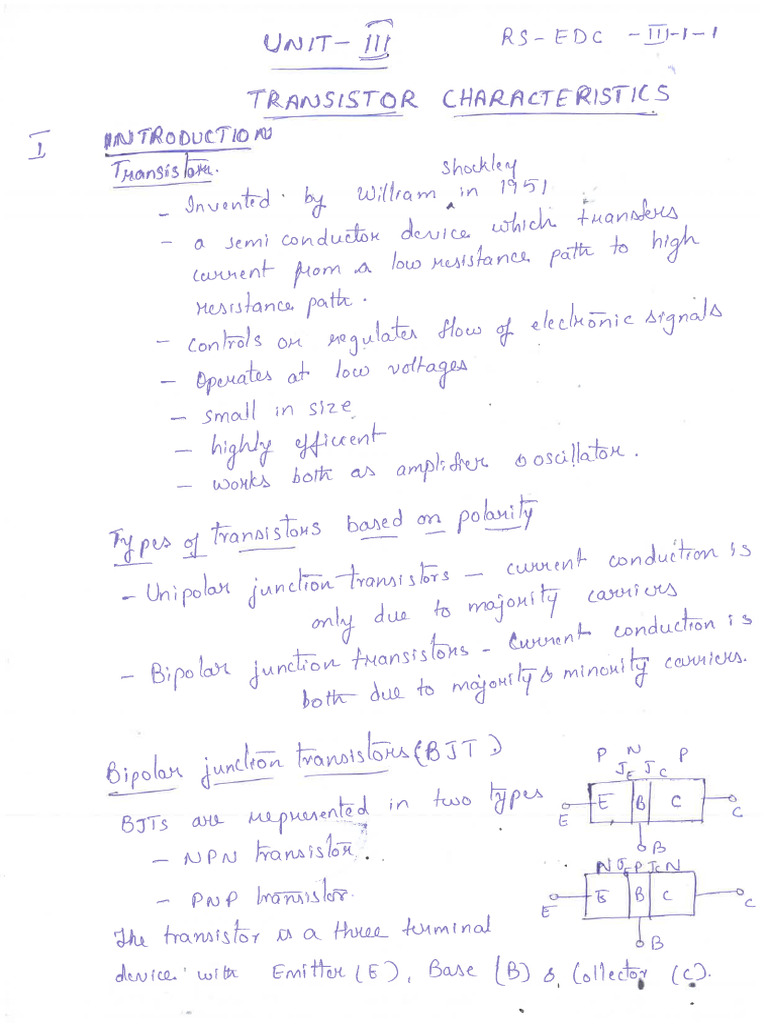 UNIT-III
RS-EDC -III-1-1
TRANSISTOR CHARACTERISTICS
I INTRODUCTION
Transistor.
- Invented by William Shockley in 1951
- a semi conductor device which transfers
current from a low resistance path to high
resistance path.
- controls or regulates flow of electronic signals
- Operates at low voltages
- small in size
- highly efficient
- works both as amplifier & oscillator.
Types of transistors based on polarity
- Unipolar junction transistors - current conduction is
only due to majority carriers
- Bipolar junction transistors - Current conduction is
both due to majority & minority carriers.
Bipolar junction transistors (BJT)
P N P
JE JC
E E B C C
B
BJTs are represented in two types
- NPN transistor.
N JE P JC N
E E B C C
B
- PNP transistor.
The transistor is a three terminal
device with Emitter (E), Base (B) & Collector (C).